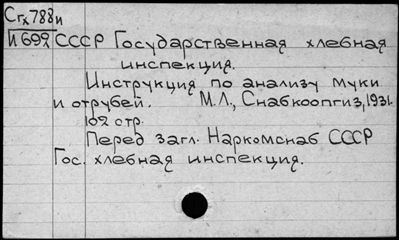 Сгх788и
И692 СССР Государственная хлебная
инспекция.
Инструкция по анализу муки
и отрубей. М.Л., Снабкоопгиз, 1931.
102 стр.
Перед загл. Наркомснаб СССР
Гос. хлебная инспекция.